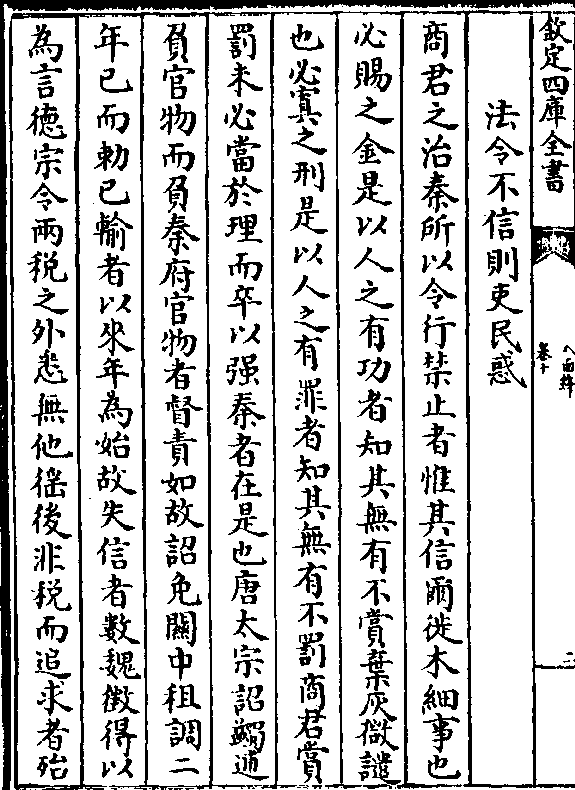 欽定四庫全書
八面鋒
卷十
二
法令不信則吏民惑
商君之治秦所以令行禁止者惟其信爾徙木細事也
必賜之金是以人之有功者知其無有不賞棄灰微譴
也必寘之刑是以人之有罪者知其無有不罰商君賞
罰未必當於理而卒以强秦者在是也唐太宗詔蠲逋
負官物而負秦府官物者督責如故詔免關中租調二
年已而勅已輸者以來年為始故失信者數魏徴得以
為言德宗令兩税之外悉無他徭後非税而追求者殆